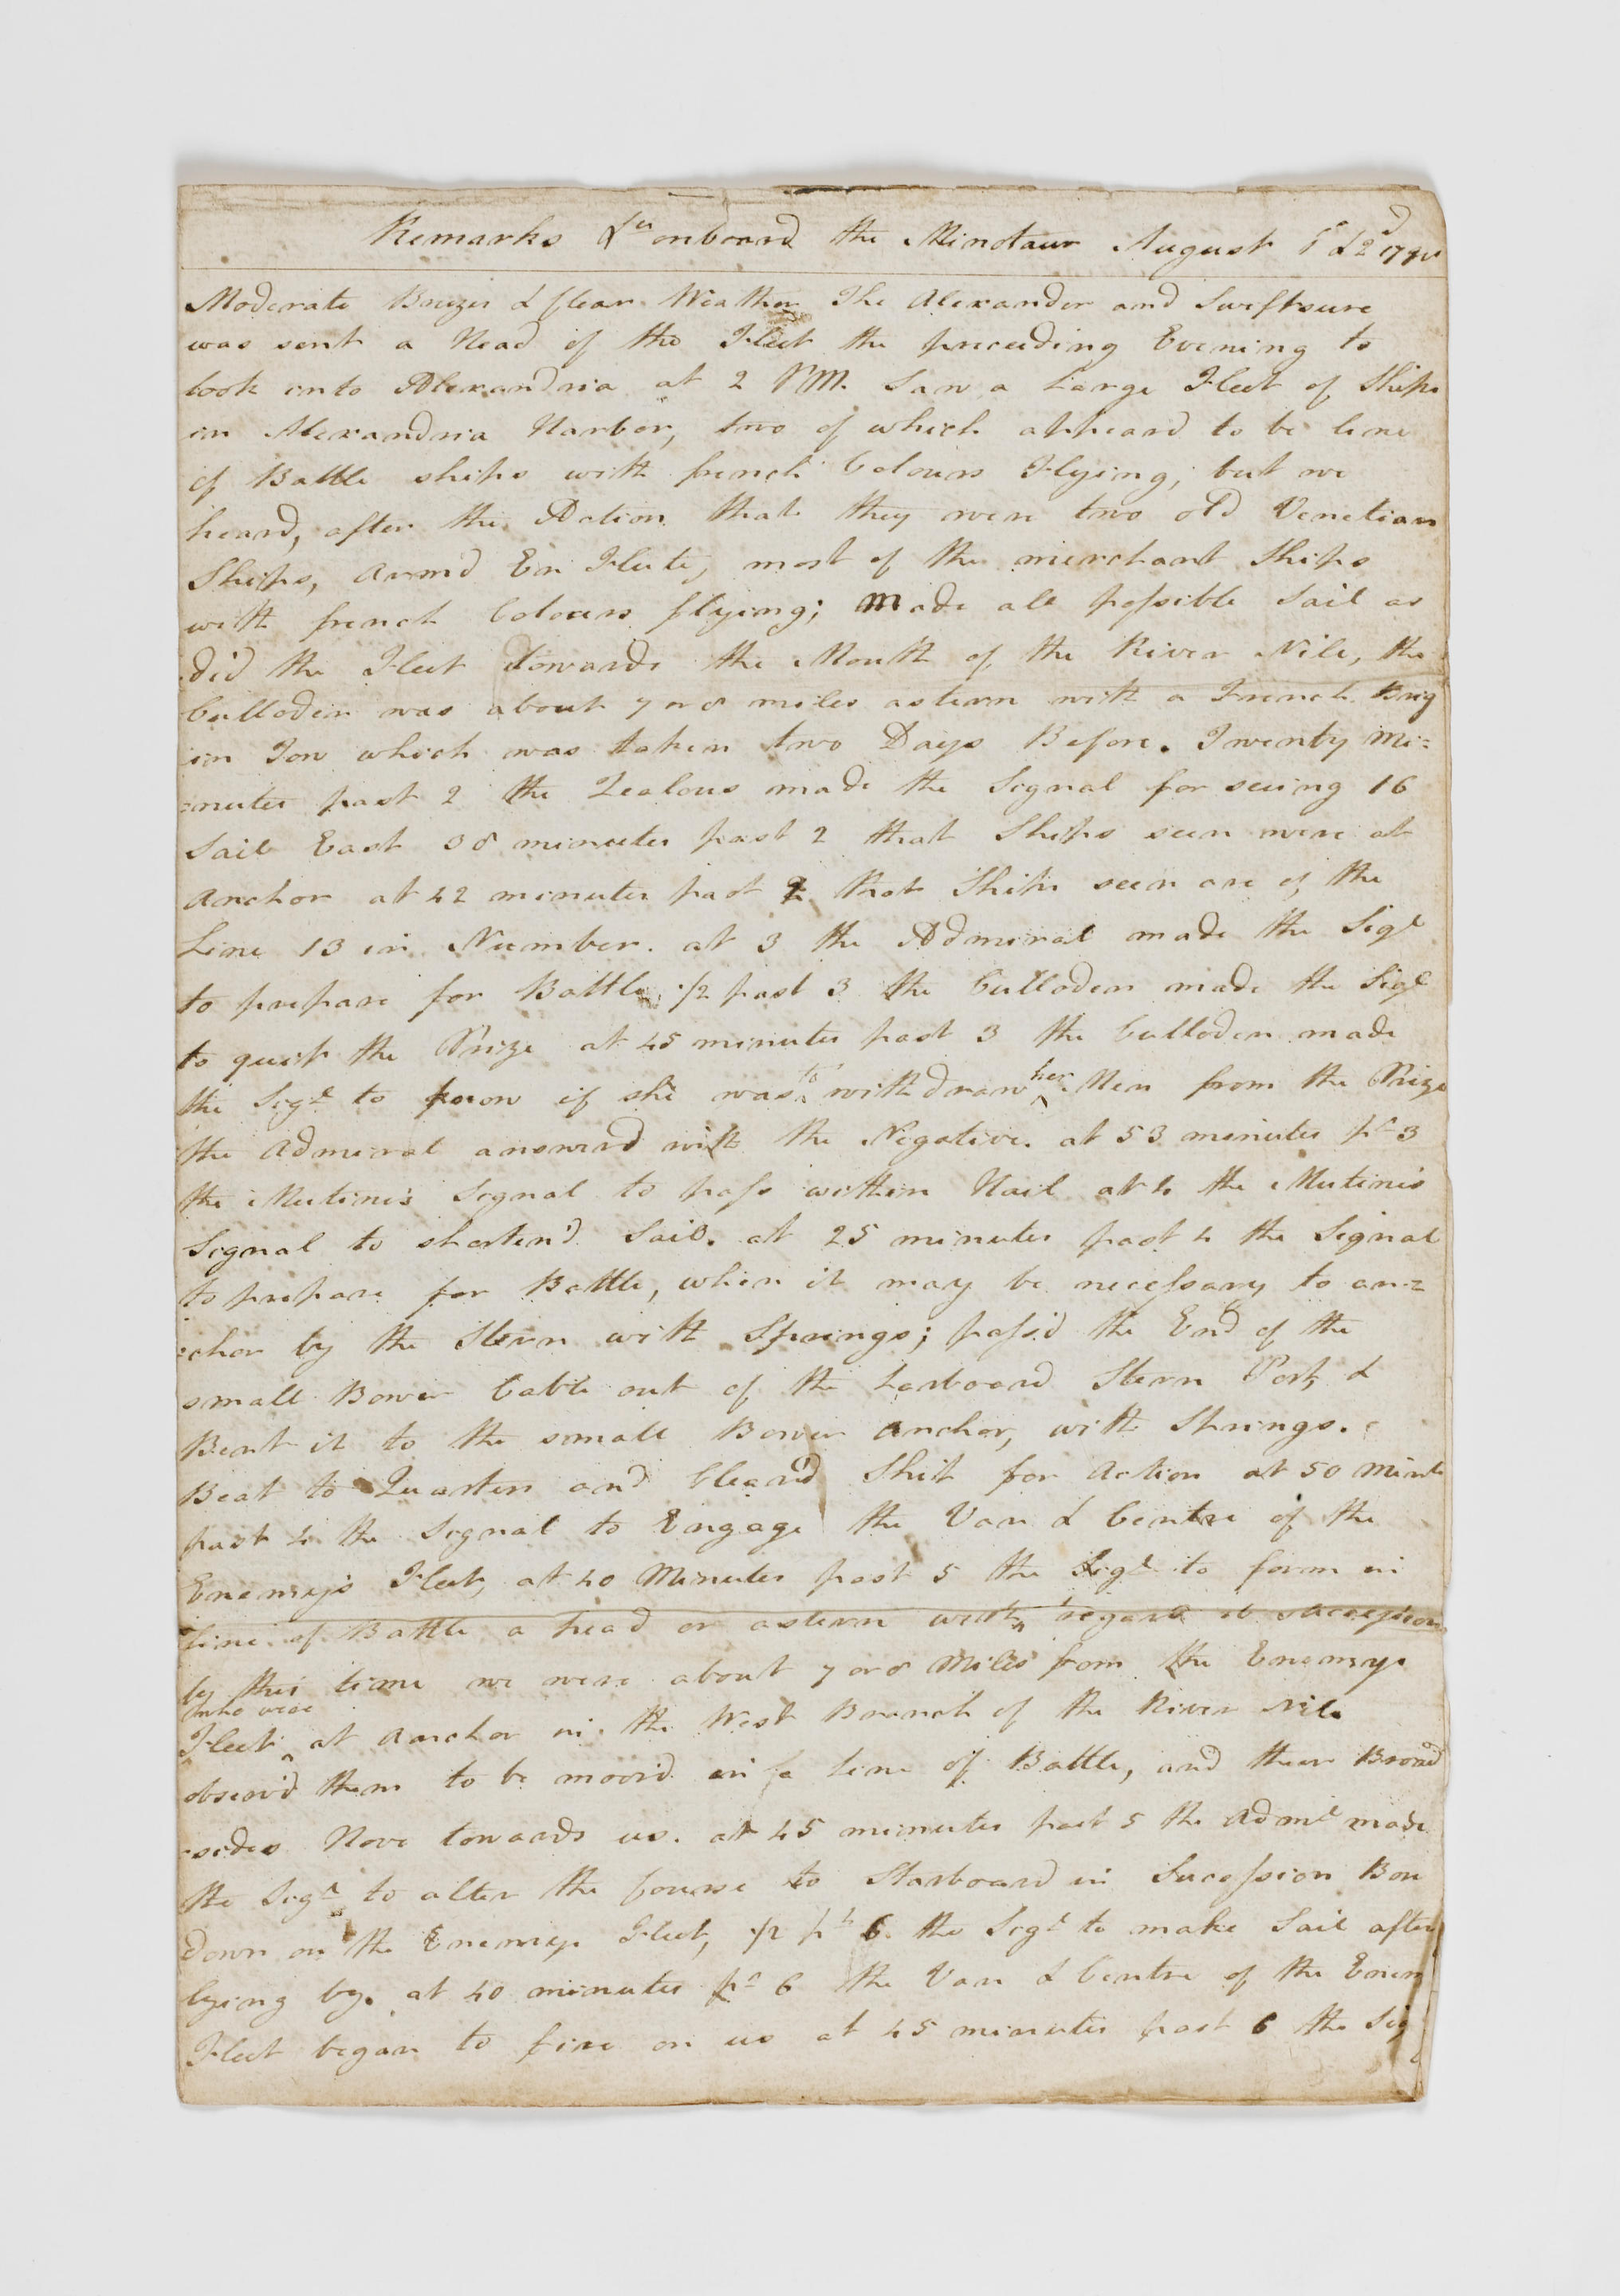 Remarks &c onboard the Minotaur August 1st & 2d 1798
Moderate Breezes & Clear Weather The Alexander and Swiftsure
was sent a Head of the Fleet the preceeding Evening to
look into Alexandria at 2 PM. Saw a Large Fleet of Ships
in Alexandria Harbor, two of which appeard to be line
of Battle ships with french Colours Flying; but we
heard, after the Action that they were two old Venetian
Ships, armd En Flute, most of the merchant Ships
with french Colours flying; Made all possible Sail as
did the Fleet towards the Mouth of the River Nile, the
Culloden was about 7 or 8 miles astern with a French Brig
in Tow which was taken two Days Before. Twenty Mi=
=nutes past 2 the Zealous made the Signal for seeing 16
Sail East 38 minutes past 2 that Ships seen were at
anchor at 42 minutes past 2 that Ships seen are of the
Line 13 in Number. at 3 the Admiral made the Sigl
to prepare for Battle, 1/2 past 3 the Culloden made the Sigl
to quit the Prize at 45 minutes past 3 the Culloden made
the Sigl to know if she was to withdraw her Men from the Prize
the Admiral answerd with the Negative. at 53 minutes pt 3
the Mutine's Signal to pass within Hail at 4 the Mutine's
Signal to shorten'd Sail. at 25 minutes past 4 the Signal
to prepare for Battle, when it may be necessary to an=
=chor by the Stern with Springs; pass'd the End of the
small Bower Cable out of the Larboard Stern Port, &
Bent it to the small Bower anchor, with Springs.
Beat to Quarters and Clear'd Ship for Action at 50 Mints
past 4 the Signal to Engage the Van & Centre of the
Enemys Fleet, at 40 Minutes past 5 the Sigl to form in
line of Battle a head or astern with regard to succession
by this time we were about 7 or 8 Miles from the Enemys
Fleet who were at anchor in the West Branch of the River Nile
observ'd them to be moor'd in a Line of Battle, and their Broad
=sides Hove towards us. at 45 minutes past 5 the Adml made
the Sigl to alter the Course to Starboard in Sucession Bore
down on the Enemys Fleet, 1/2 pt 6 the Sigl to make Sail after
lying by. at 40 minutes pt 6 the Van & Centre of the Enem
Fleet began to fire on us at 45 minutes past 6 the Sig